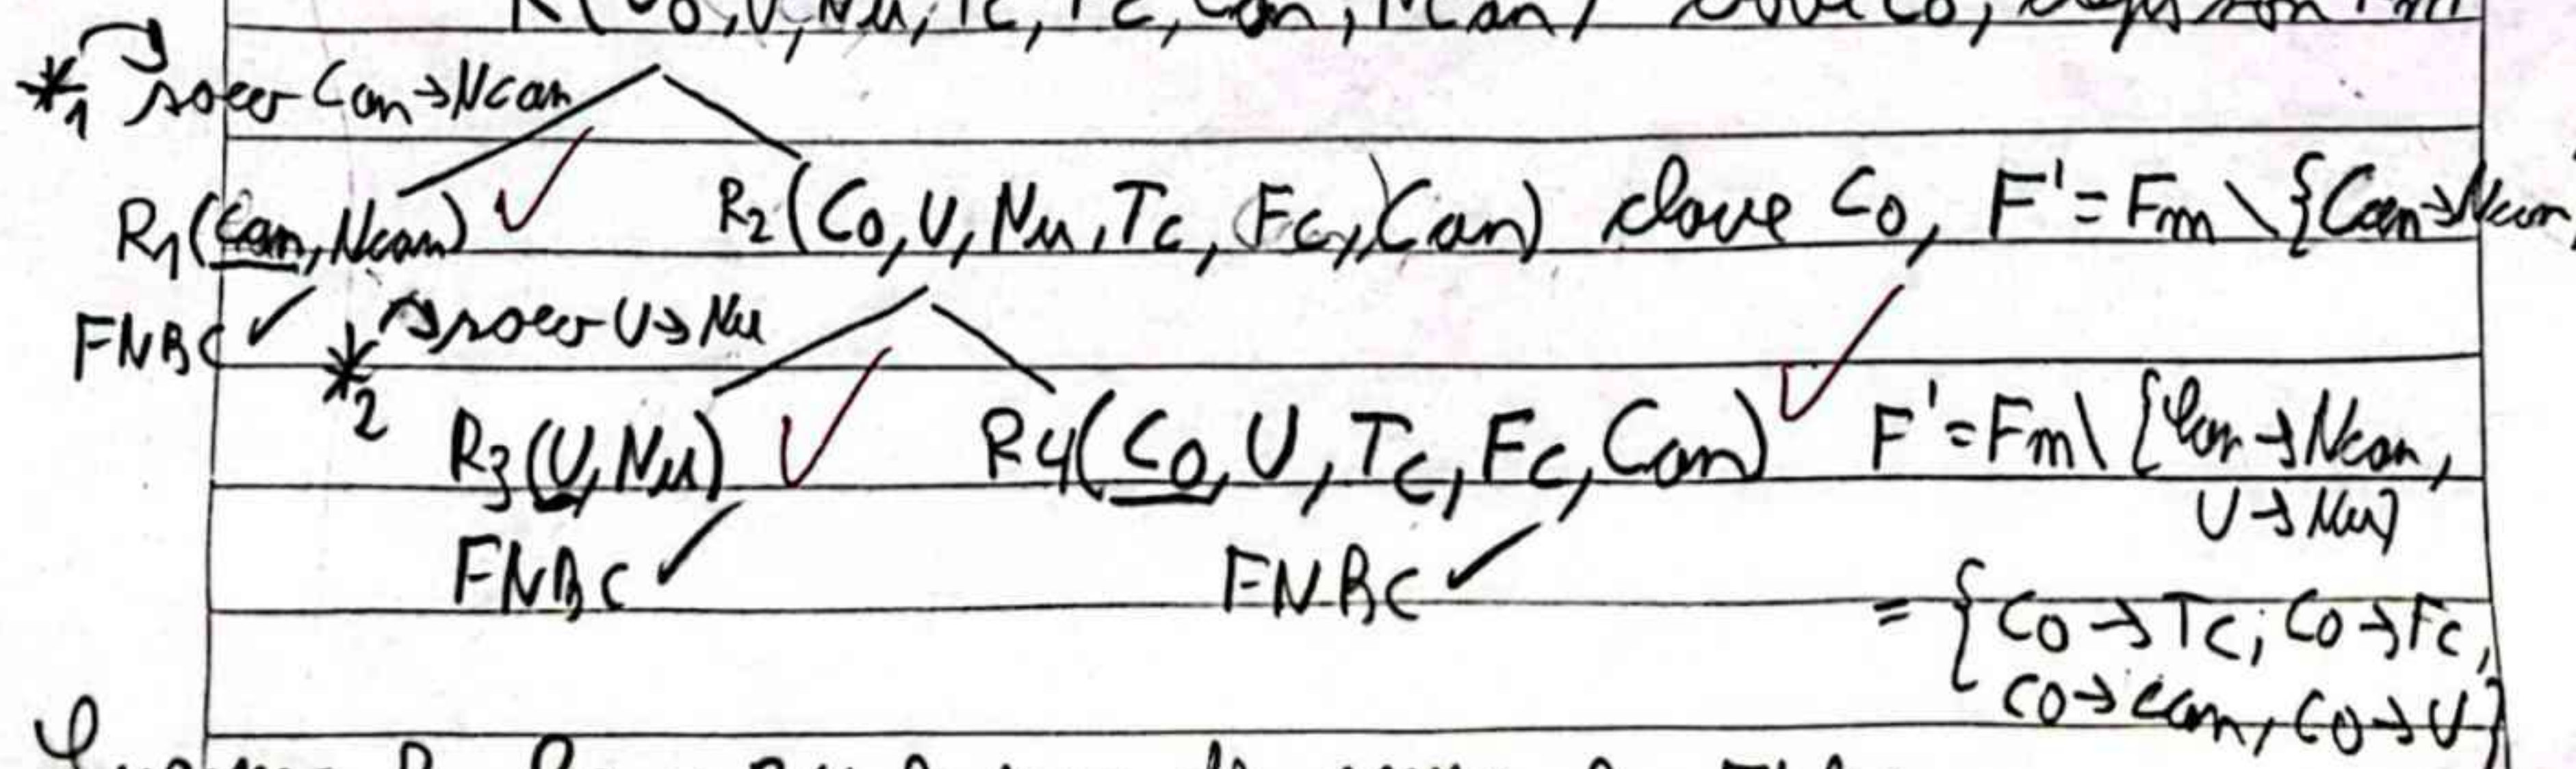 R(Co, U, Nu, Tc, Fc, Can, Ncan) clave Co,
*1 Can→Ncan
R1(Can, Ncan) ✓ R2(Co, U, Nu, Tc, Fc, Can) clave Co, F'=Fm\{Can→Ncan
FNBC ✓
*2 U→Nu
R3(U, Nu) ✓ R4(Co, U, Tc, Fc, Can) ✓ F'=Fm\{Can→Ncan,
U→Nu}
FNBC ✓ FNBC ✓
={Co→Tc; Co→Fc,
Co→Can, Co→U}